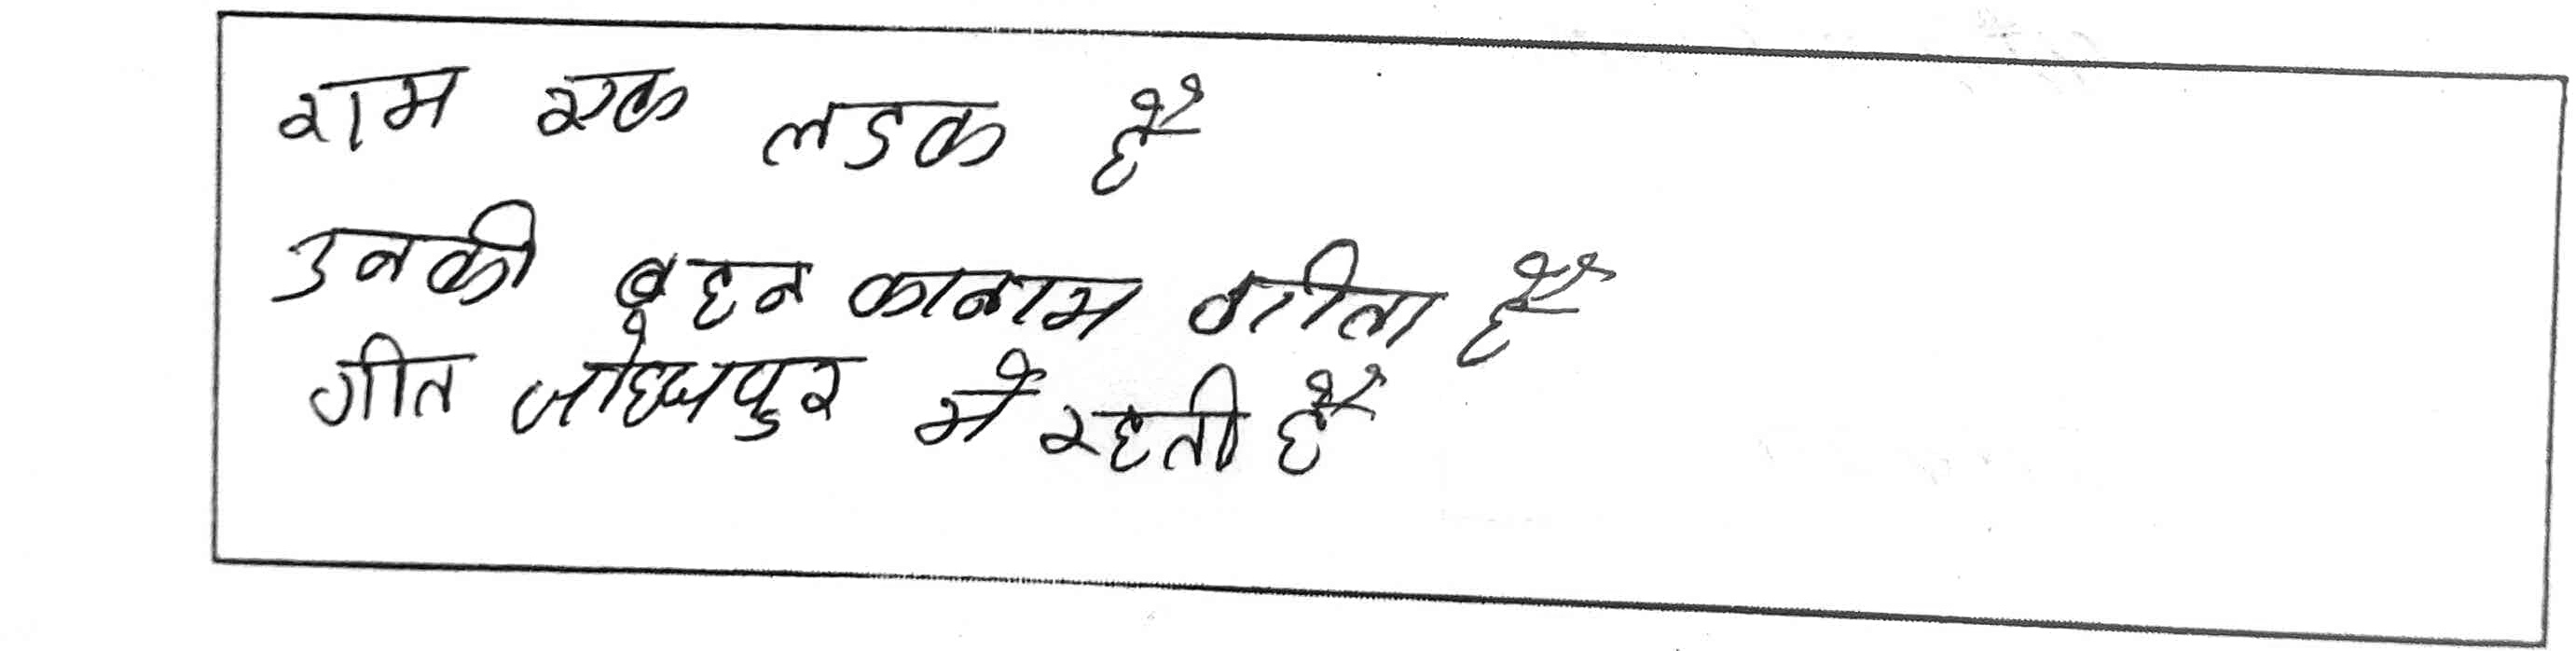 राम एक लडक है
उनकी बहन कानाम गीता है
गीत जोधपुर में रहती है